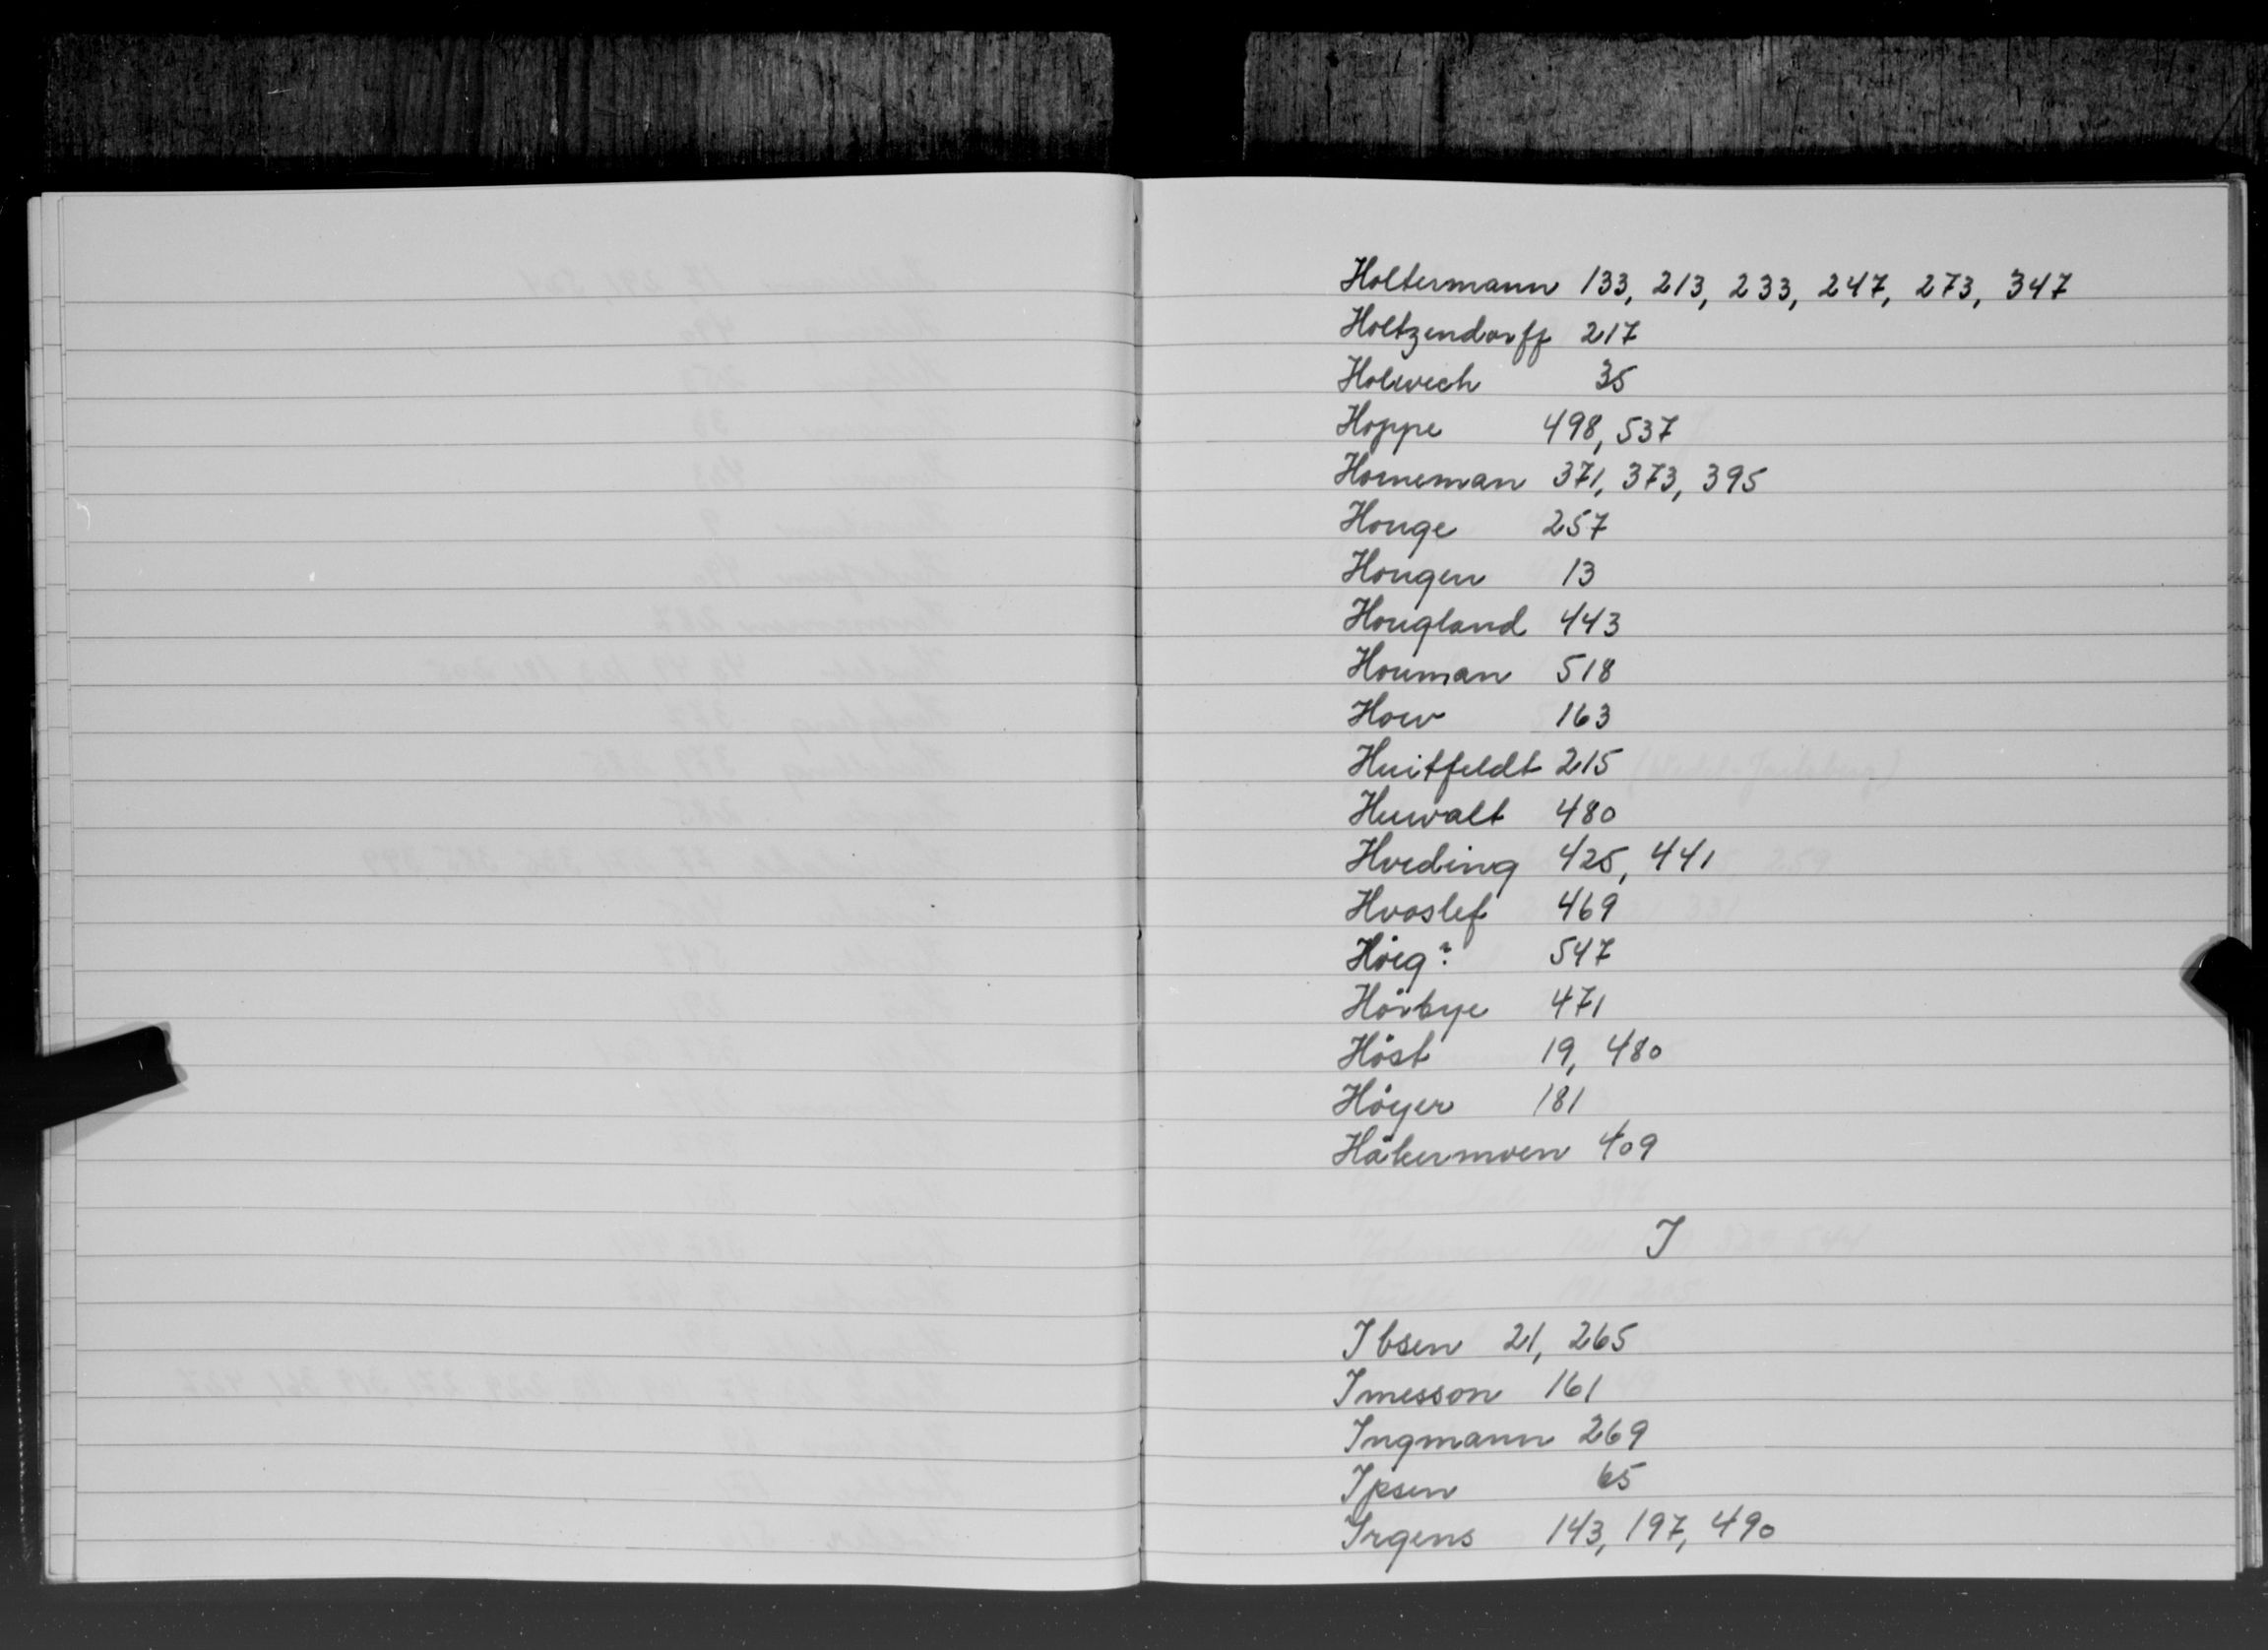 Holtermann 133, 213, 233, 247, 273, 347
Holtzendorff 217
Holwech 35
Hoppe 498, 537
Horneman 371, 373, 395
Houge 257
Hougen 13
Hougland 443
Houman 518
How 163
Huitfeldt 215
Huwalt 480
Hveding 425, 441
Hvoslef 469
Höeg? 547
Hörbye 471
Höst 19, 480
Höyer 181
Håkermoen 409
I
Ibsen 21, 265
Imesson 161
Ingmann 269
Ipsen 65
Irgens 143, 197, 490